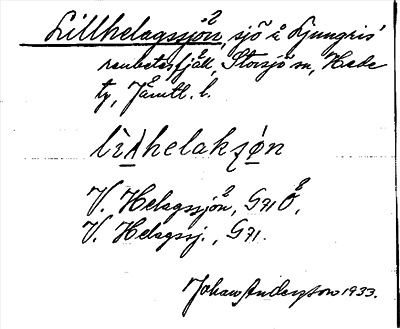 Lillhelagssjön, sjö å Ljungris'
renbetesfjäll, Storsjö sn, Hede
tg, Jämtl. l.
V. Helagssjön, G71 Ö,
V. Helagssj., G71.
Johan Anderson 1933.